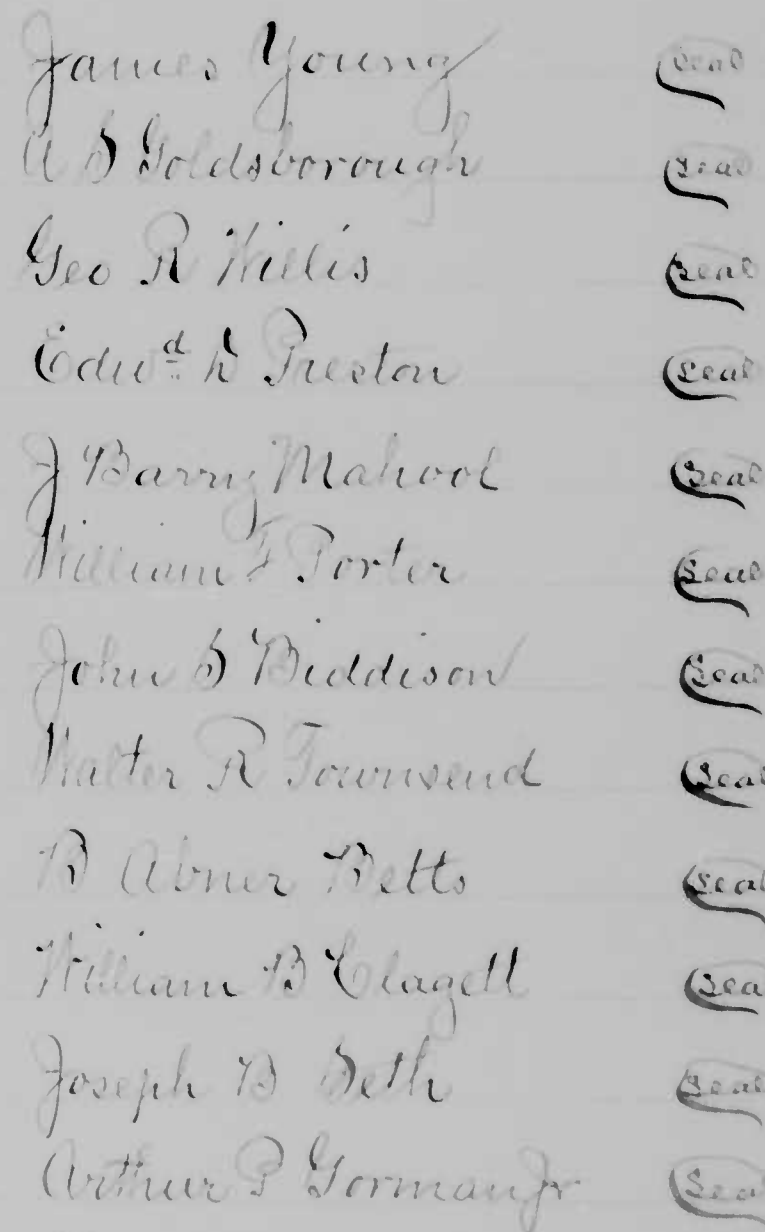 James Young Seal
A S Goldsborough Seal
Geo R Willis Seal
Edwd D Preston Seal
J Barry Mahool Seal
William F Porter Seal
John S Biddison Seal
Walter R Townsend Seal
B Abner Betts Seal
William B Clagett Seal
Joseph B Seth Seal
Arthur P Gorman Jr Seal